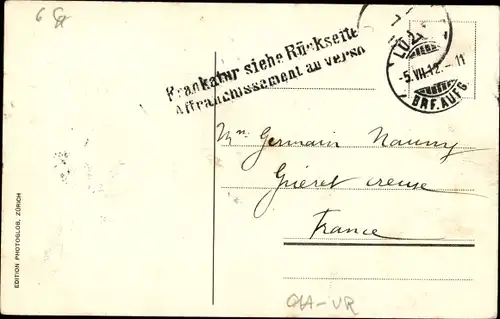 6 Gr
Frankatur siehe Rückseite
Affranchissement au verso
LUZ
-5.VII.12.-11
BRF.AUFG.
Mr. Germain Nauny
Guéret creuse
France
EDITION PHOTOGLOB, ZÜRICH
CHA-VR